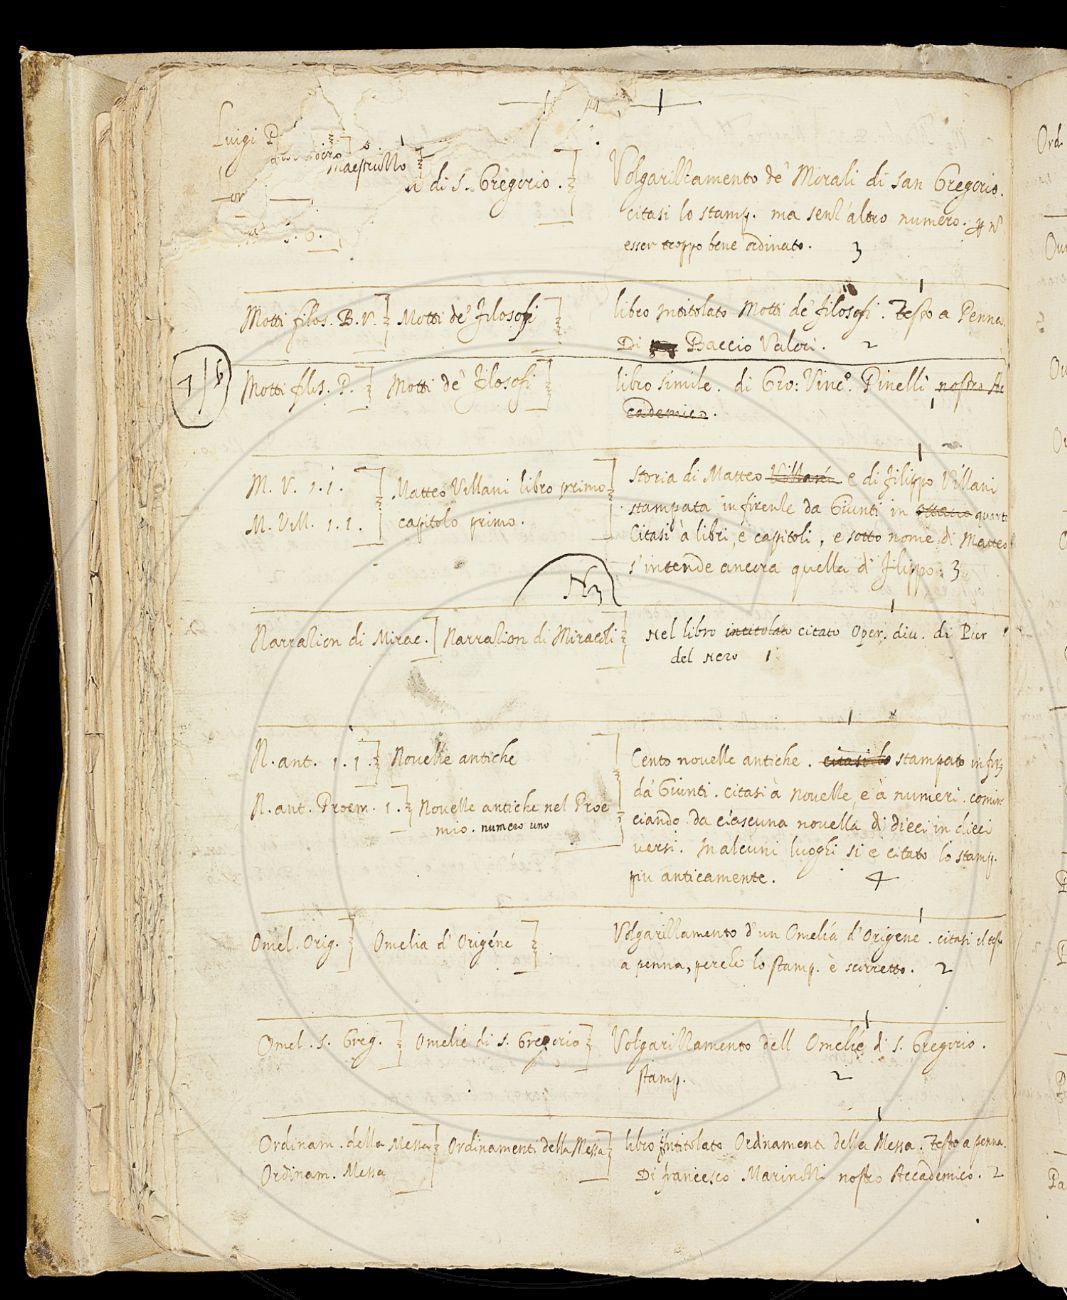 M
Luigi P
Maestruzzo
di S. Gregorio. Volgarizzamento de' Morali di San Gregorio.
citasi lo stamp. ma senz'altro numero. p nō
S. G. esser troppo bene ordinato. 3
Motti filos. B. V. Motti de' filosofi libro intitolato Motti de' filosofi. Testo a Penna.
Di Baccio Valori. 2
Motti filos. P. Motti de' filosofi libro simile. di Gio: Vinc°. Pinelli nostro Ac
cademico.
M. V. 1. 1. Matteo Villani libro primo Storia di Matteo Villani e di filippo Villani
M. Vill. 1. 1. capitolo primo. stampata in firenze da Giunti in ottavo quarto
Citasi à libri, e capitoli, e sotto nome di Matteo
s'intende ancora quella di filippo. 3
N
Narrazion di Mirac. Narrazion di Miracoli Nel libro intitolato citato Oper. div. di Pier
del Nero 1
N. ant. 1. 1. Novelle antiche Cento novelle antiche. citasi lo stampato in firz
N. ant. Proem. 1. Novelle antiche nel Proe da Giunti. citasi à Novelle, e à numeri. comin
mio. numero uno ciando da ciascuna novella di dieci in dieci
versi. In alcuni luoghi si è citato lo stamp.
piu anticamente. 4
Omel. Orig. Omelia d'Origéne Volgarizzamento d'un Omelia d'Origene. citasi il testo
a penna, perchè lo stamp. è scorretto. 2
Omel. S. Greg. Omelie di S. Gregorio Volgarizzamento dell Omelie di S. Gregorio.
stamp. 2
Ordinam. della Messa Ordinamenti della Messa libro intitolato Ordinamenti della Messa. Testo a penna.
Ordinam. Messa Di francesco Marinozzi nostro Accademico. 2